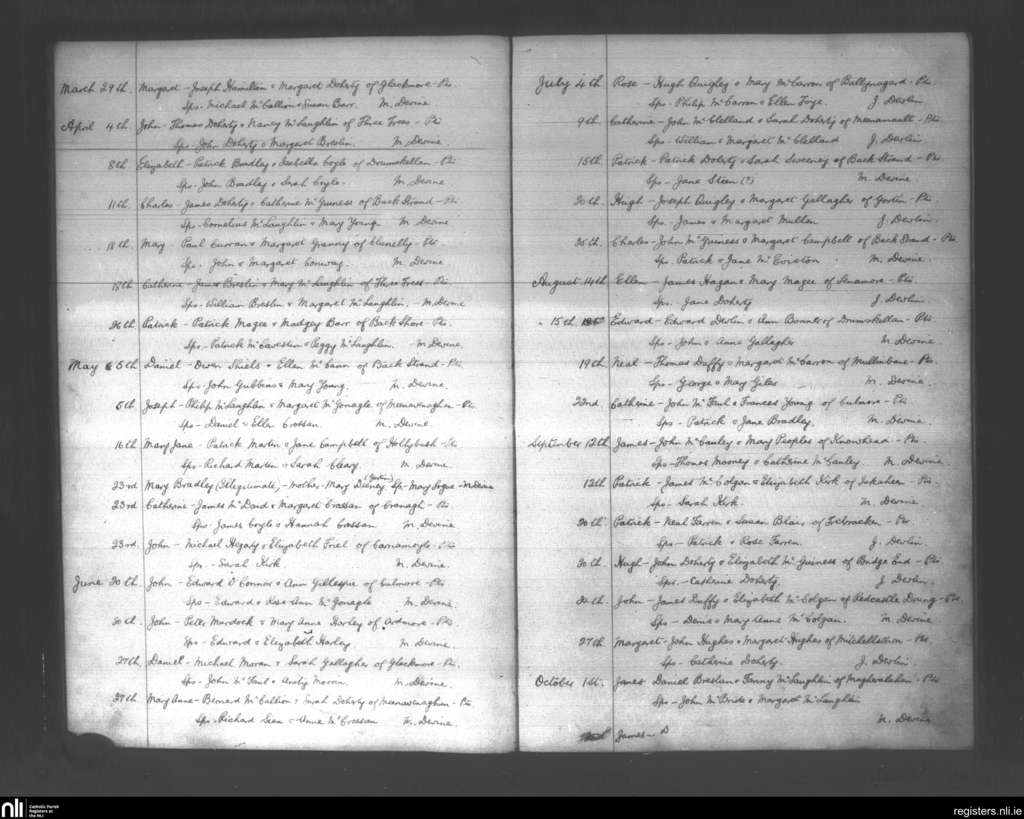 March 29th. Margaret - Joseph Hamilton & Margaret Doherty of Glackmore - Prs
Sps. Michael McCallion & Susan Barr. M. Devine
April 4th John - Thomas Doherty & Nancy McLaughlin of Three Trees - Prs
Sps - John Doherty & Margaret Breslin. M. Devine.
8th Elizabeth - Patrick Bradley & Isabella Coyle of Drumskellan - Prs
Sps - John Bradley & Sarah Coyle. M. Devine
11th. Charles - James Doherty & Catherine McGuiness of Back Strand - Prs
Sps - Cornelius McLaughlin & Mary Young. M. Devine
18th. Mary - Paul Curran & Margaret Granny of - Prs
Sps. John & Margaret Conway. M. Devine
18th Catherine - James Breslin & Mary McLaughlin of Three Trees - Prs
Sps - William Breslin & Margaret McLaughlin. - M. Devine
26th Patrick - Patrick Magee & Madgey Barr of Back Shore - Prs.
Sps - Patrick & Peggy McLaughlin. M. Devine.
May 5th Daniel - Owen Shiels & Ellen McCann of Back Strand - Prs
Sps - John Gubbins & Mary Young. M. Devine
5th Joseph - Philip McLaughlin & Margaret McGonagle of - Prs
Sps - Daniel & Ellen Crossan. M. Devine.
16th Mary Jane - Patrick Martin & Jane Campbell of Hollybush - Prs
Sps - Richard Martin & Sarah Cleary. M. Devine
23rd Mary Bradley (Illegitimate) - mother - Mary Sp - Mary - M. Devine
23rd Catherine - James McDaid & Margaret Crossan of Cranagh - Prs
Sps - James Coyle & Hannah Crossan M. Devine
23rd. John - Michael Hegarty & Elizabeth Friel of Carnamoyle - Prs
Sp - Sarah Kirk M. Devine
June 20th John - Edward O'Connor & Ann Gillespie of Culmore - Prs
Sps - Edward & Rose Ann McGonagle M. Devine.
20th John - Peter Murdock & Mary Anne Harley of Ardmore - Prs
Sps - Edward & Elizabeth Harley M. Devine.
27th, Daniel - Michael Moran & Sarah Gallagher of Glackmore - Prs.
Sps - John McFaul & Moran M. Devine.
27th Mary Anne - Bernard McCallion & Sarah Doherty of - Prs
Sps - Richard & Anne McCrossan M. Devine
July 4th Rose - Hugh Quigley & Mary McCarron of Ballynagard - Prs
Sps - Philip McCarron & Ellen Foye. J. Devlin
9th Catherine - John McClelland & Sarah Doherty of - Prs
Sps - William & Margaret McClelland J. Devlin
15th Patrick - Patrick Doherty & Sarah Sweeney of Back Strand - Prs
Sps - Jane Steen (?) M. Devine
20th. Hugh - Joseph Quigley & Margaret Gallagher of Gortin - Prs
Sps - James & Margaret Mullan J. Devlin
25th. Charles - John McGuiness & Margaret Campbell of Back Strand - Prs
Sps. Patrick & Jane McCriston. M. Devine.
August 14th Ellen - James Hagan & Mary Magee of - Prs
Sps. Jane Doherty J. Devlin
15th Edward - Edward Devlin & Ann Bonner of Drumskellan - Prs
Sps - John & Anne Gallagher M. Devine
19th Neal - Thomas Duffy & Margaret McCarron of - Prs
Sps - George & Mary Giles M. Devine.
22nd. Catherine - John McFaul & Frances Young of Culmore - Prs.
Sps - Patrick & Jane Bradley. M. Devine.
September 12th James - John McCauley & Mary Peoples of Knowhead - Prs
Sps - Thomas Mooney & Catherine McCauley M. Devine
12th Patrick - James McColgan & Elizabeth Kirk of Iskaheen - Prs
Sps - Sarah Kirk M. Devine
20th Patrick - Neal Farren & Susan Blair of - Prs
Sps - Patrick & Rose Farren. J. Devlin.
20th. Hugh - John Doherty & Elizabeth McGuiness of Bridge End - Prs
Sps - Catherine Doherty. J Devlin.
24th. John - James Duffy & Elizabeth McColgan of Redcastle - Prs.
Sps - Denis & Mary Anne McColgan. M. Devine
27th. Margaret - John Hughes & Margaret Hughes of Mitchelstown - Prs.
Sps - Catherine Doherty. J. Devlin
October 1st. James Daniel Breslan & Fanny McLaughlin of - Prs
Sps - John McBride & Margaret McLaughlin
M. Devine
James - D
nli
Catholic Parish
Registers at
the NLI
registers.nli.ie